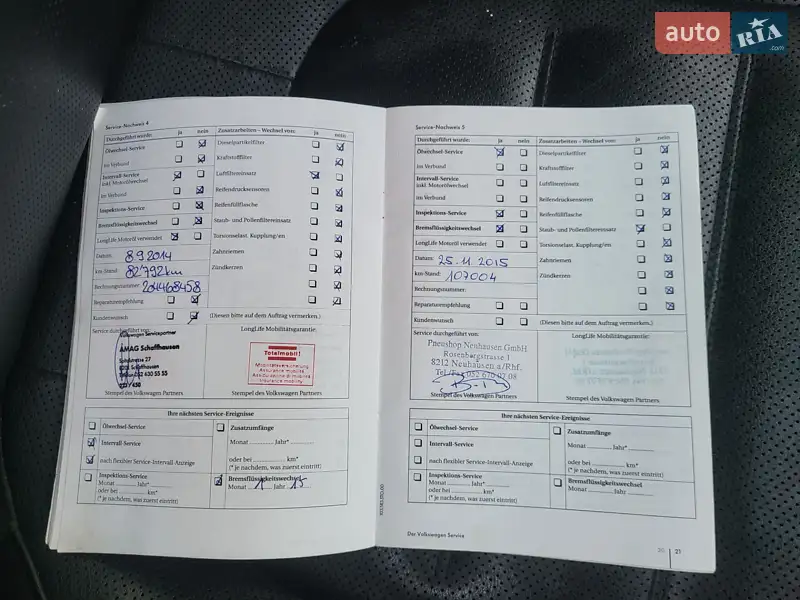 auto RIA .com
Service-Nachweis 4
Durchgeführt wurde: ja nein
Ölwechsel-Service
im Verbund
Intervall-Service
inkl. Motorölwechsel
im Verbund
Inspektions-Service
Bremsflüssigkeitswechsel
LongLife Motoröl verwendet
Datum: 8 9 2014
km-Stand: 82'792 km
Rechnungsnummer: 204468458
Reparaturempfehlung
Kundenwunsch
Zusatzarbeiten - Wechsel von: ja nein
Dieselpartikelfilter
Kraftstofffilter
Luftfiltereinsatz
Reifendrucksensoren
Reifenfüllflasche
Staub- und Pollenfiltereinsatz
Torsionselast. Kupplung/en
Zahnriemen
Zündkerzen
(Diesen bitte auf dem Auftrag vermerken.)
Service durchgeführt von:
Volkswagen Servicepartner
AMAG Schaffhausen
8208 Schaffhausen
Stempel des Volkswagen Partners
LongLife Mobilitätsgarantie:
Totalmobil!
Mobilitätsversicherung
Assurance mobilité
Assicurazione di mobilità
Insurance mobility
Stempel des Volkswagen Partners
Ihre nächsten Service-Ereignisse
Ölwechsel-Service
Intervall-Service
nach flexibler Service-Intervall-Anzeige
Inspektions-Service
Monat ............ Jahr*............
oder bei ............ km*
(* je nachdem, was zuerst eintritt)
Zusatzumfänge
Monat ............ Jahr*............
oder bei ............ km*
(* je nachdem, was zuerst eintritt)
Bremsflüssigkeitswechsel
Monat 1 Jahr 15
Service-Nachweis 5
Durchgeführt wurde: ja nein
Ölwechsel-Service
im Verbund
Intervall-Service
inkl. Motorölwechsel
im Verbund
Inspektions-Service
Bremsflüssigkeitswechsel
LongLife Motoröl verwendet
Datum: 25.11.2015
km-Stand: 107004
Rechnungsnummer:
Reparaturempfehlung
Kundenwunsch
Zusatzarbeiten - Wechsel von: ja nein
Dieselpartikelfilter
Kraftstofffilter
Luftfiltereinsatz
Reifendrucksensoren
Reifenfüllflasche
Staub- und Pollenfiltereinsatz
Torsionselast. Kupplung/en
Zahnriemen
Zündkerzen
(Diesen bitte auf dem Auftrag vermerken.)
Service durchgeführt von:
Pneushop Neuhausen GmbH
Rosenbergstrasse 1
8212 Neuhausen a/Rhf.
Stempel des Volkswagen Partners
LongLife Mobilitätsgarantie:
Stempel des Volkswagen Partners
Ihre nächsten Service-Ereignisse
Ölwechsel-Service
Intervall-Service
nach flexibler Service-Intervall-Anzeige
Inspektions-Service
Monat ............ Jahr*............
oder bei ............ km*
(* je nachdem, was zuerst eintritt)
Zusatzumfänge
Monat ............ Jahr*............
oder bei ............ km*
(* je nachdem, was zuerst eintritt)
Bremsflüssigkeitswechsel
Monat ............ Jahr ............
Der Volkswagen Service
20 21